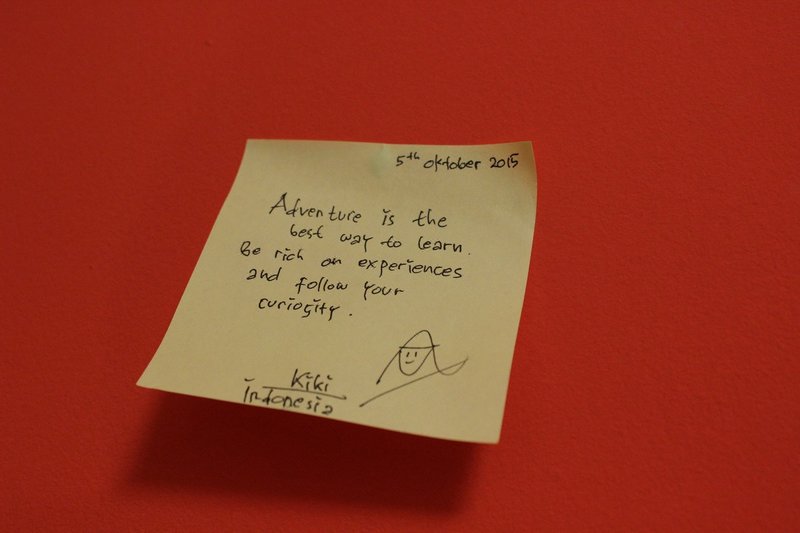 5th oktober 2015
Adventure is the
best way to learn.
Be rich on experiences
and follow your
curiosity.
Kiki
indonesia